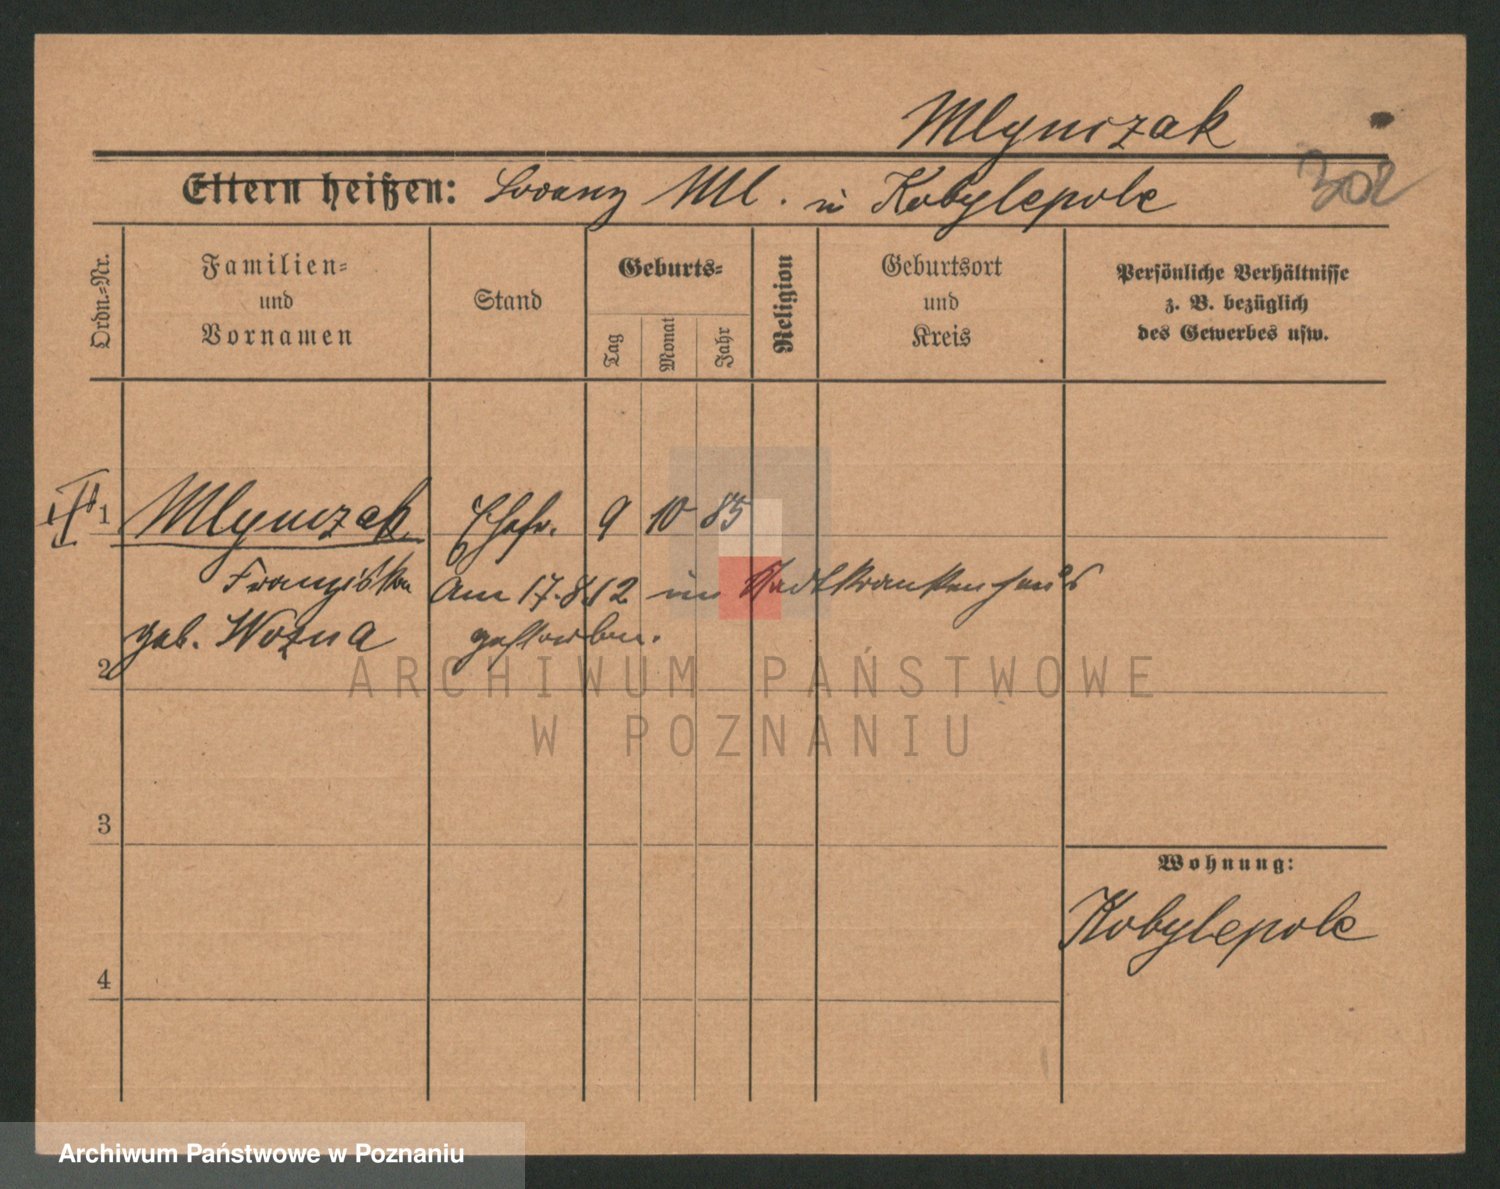 Mlynczak
Eltern heißen: Lorenz Ml. in Kobylepole
302
Ordn.=Nr.
Familien=
und
Vornamen
Stand
Geburts=
Tag
Monat
Jahr
Religion
Geburtsort
und
Kreis
Persönliche Verhältnisse
z. B. bezüglich
des Gewerbes usw.
1 Mlynczak Ehefr. 9 10 85
Franziska am 17.8.12 im Stadtkrankenhaus
geb. Wozna gestorben.
2
ARCHIWUM PAŃSTWOWE
W POZNANIU
3
Wohnung:
Kobylepole
4
Archiwum Państwowe w Poznaniu